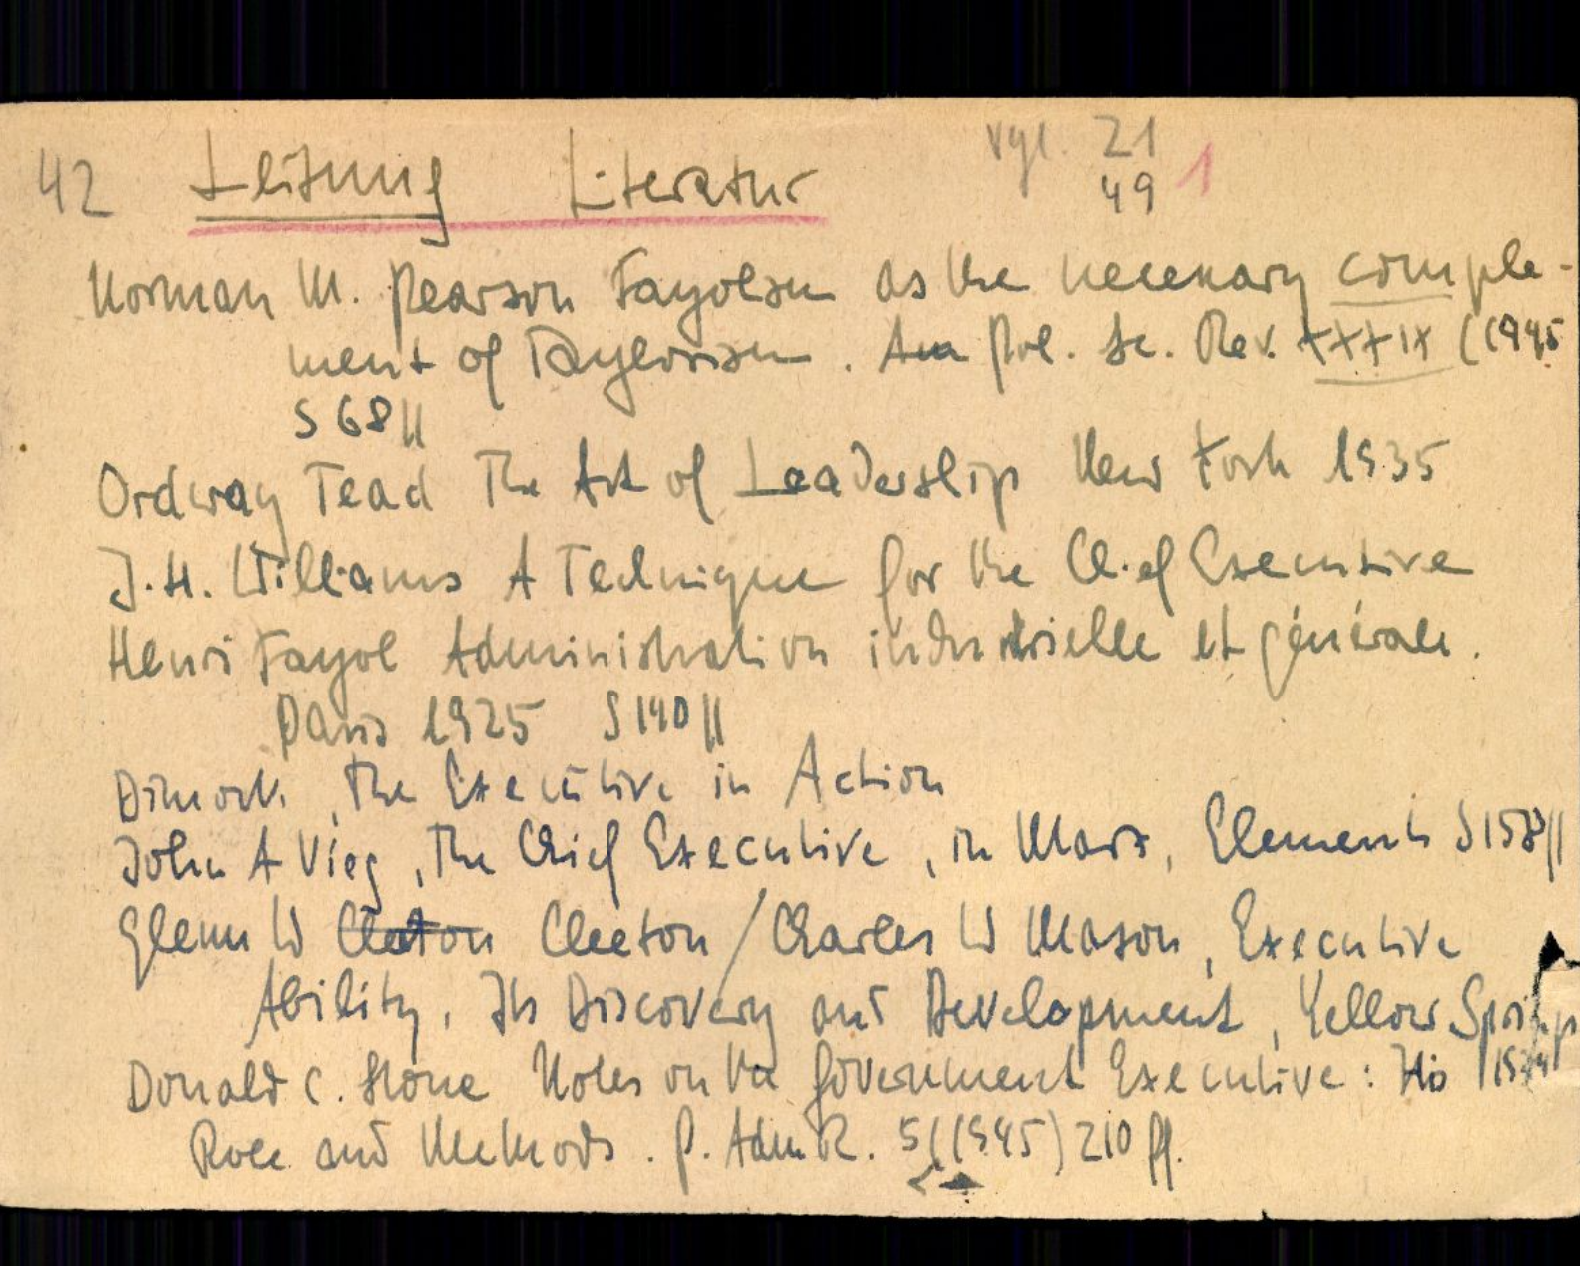 42 Leitung Literatur vgl. 21 1
49
Norman M. Pearson Fayolism as the necessary comple-
ment of Taylorism. Am Pol. Sc. Rev. XXXIX (1945
S 68 ff
Ordway Tead The Art of Leadership New York 1935
J.H. Williams A Technique for the Chief Executive
Henri Fayol Administration industrielle et générale.
Paris 1925 S 140 ff
Dimock, The Executive in Action
John A Vieg, The Chief Executive, in Marx, Elements S 158 ff
Glenn W Cleeton Cleeton / Charles W Mason, Executive
Ability, Its Discovery and Development, Yellow Springs
Donald C. Stone Notes on the Government Executive: His
Role and Methods. P. Adm R. 5 (1945) 210 ff.